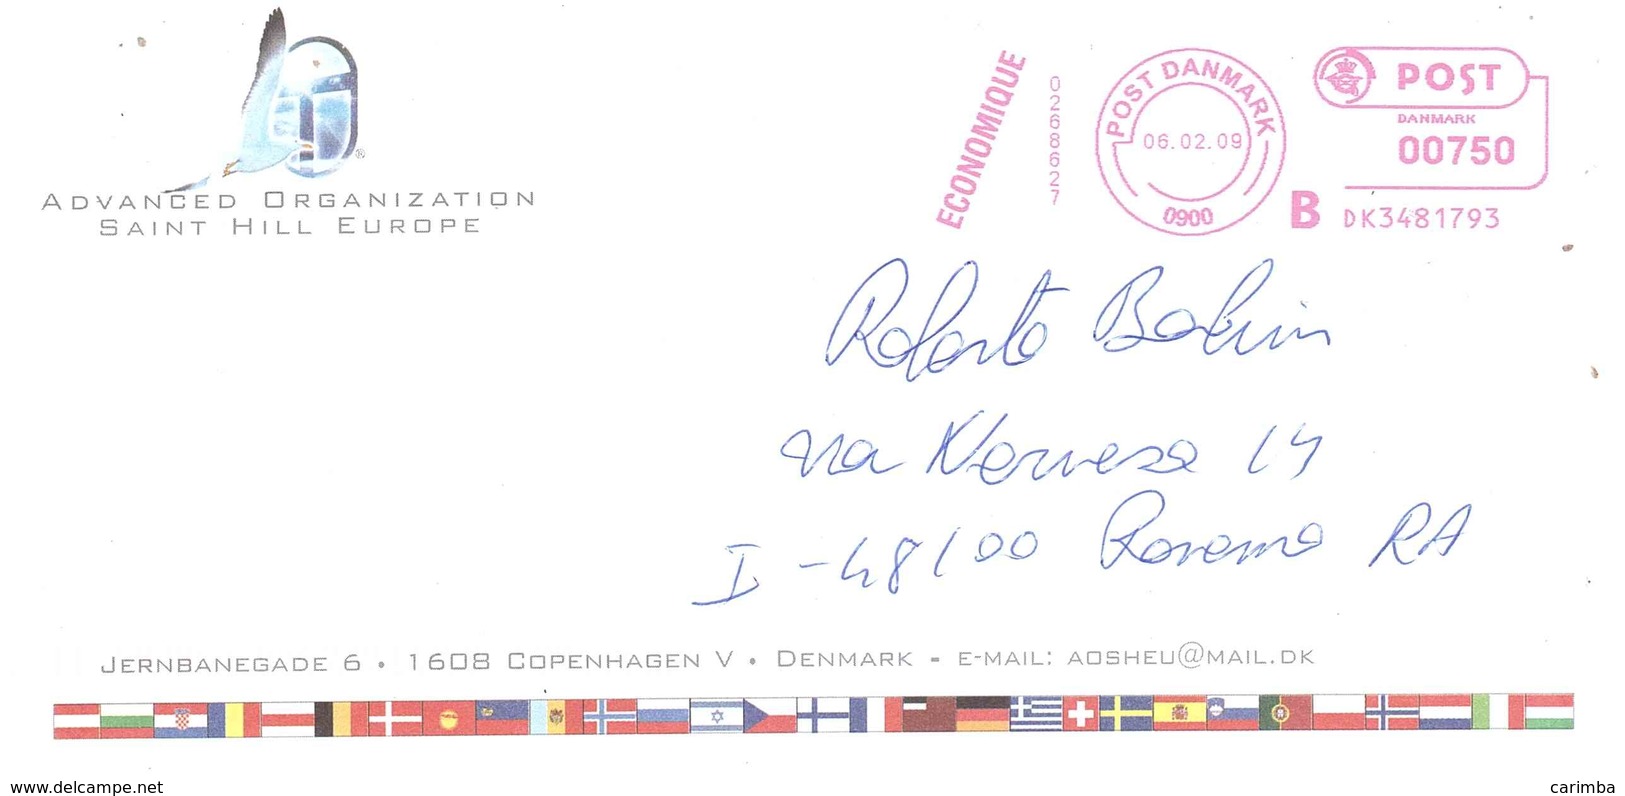 ADVANCED ORGANIZATION
SAINT HILL EUROPE
®
ECONOMIQUE
0268627
POST DANMARK
06.02.09
0900
POST
DANMARK
00750
B DK3481793
Roberto
via Nervesa 14
I-48100 Ravenna RA
JERNBANEGADE 6 • 1608 COPENHAGEN V • DENMARK - E-MAIL: AOSHEU@MAIL.DK
www.delcampe.net
carimba